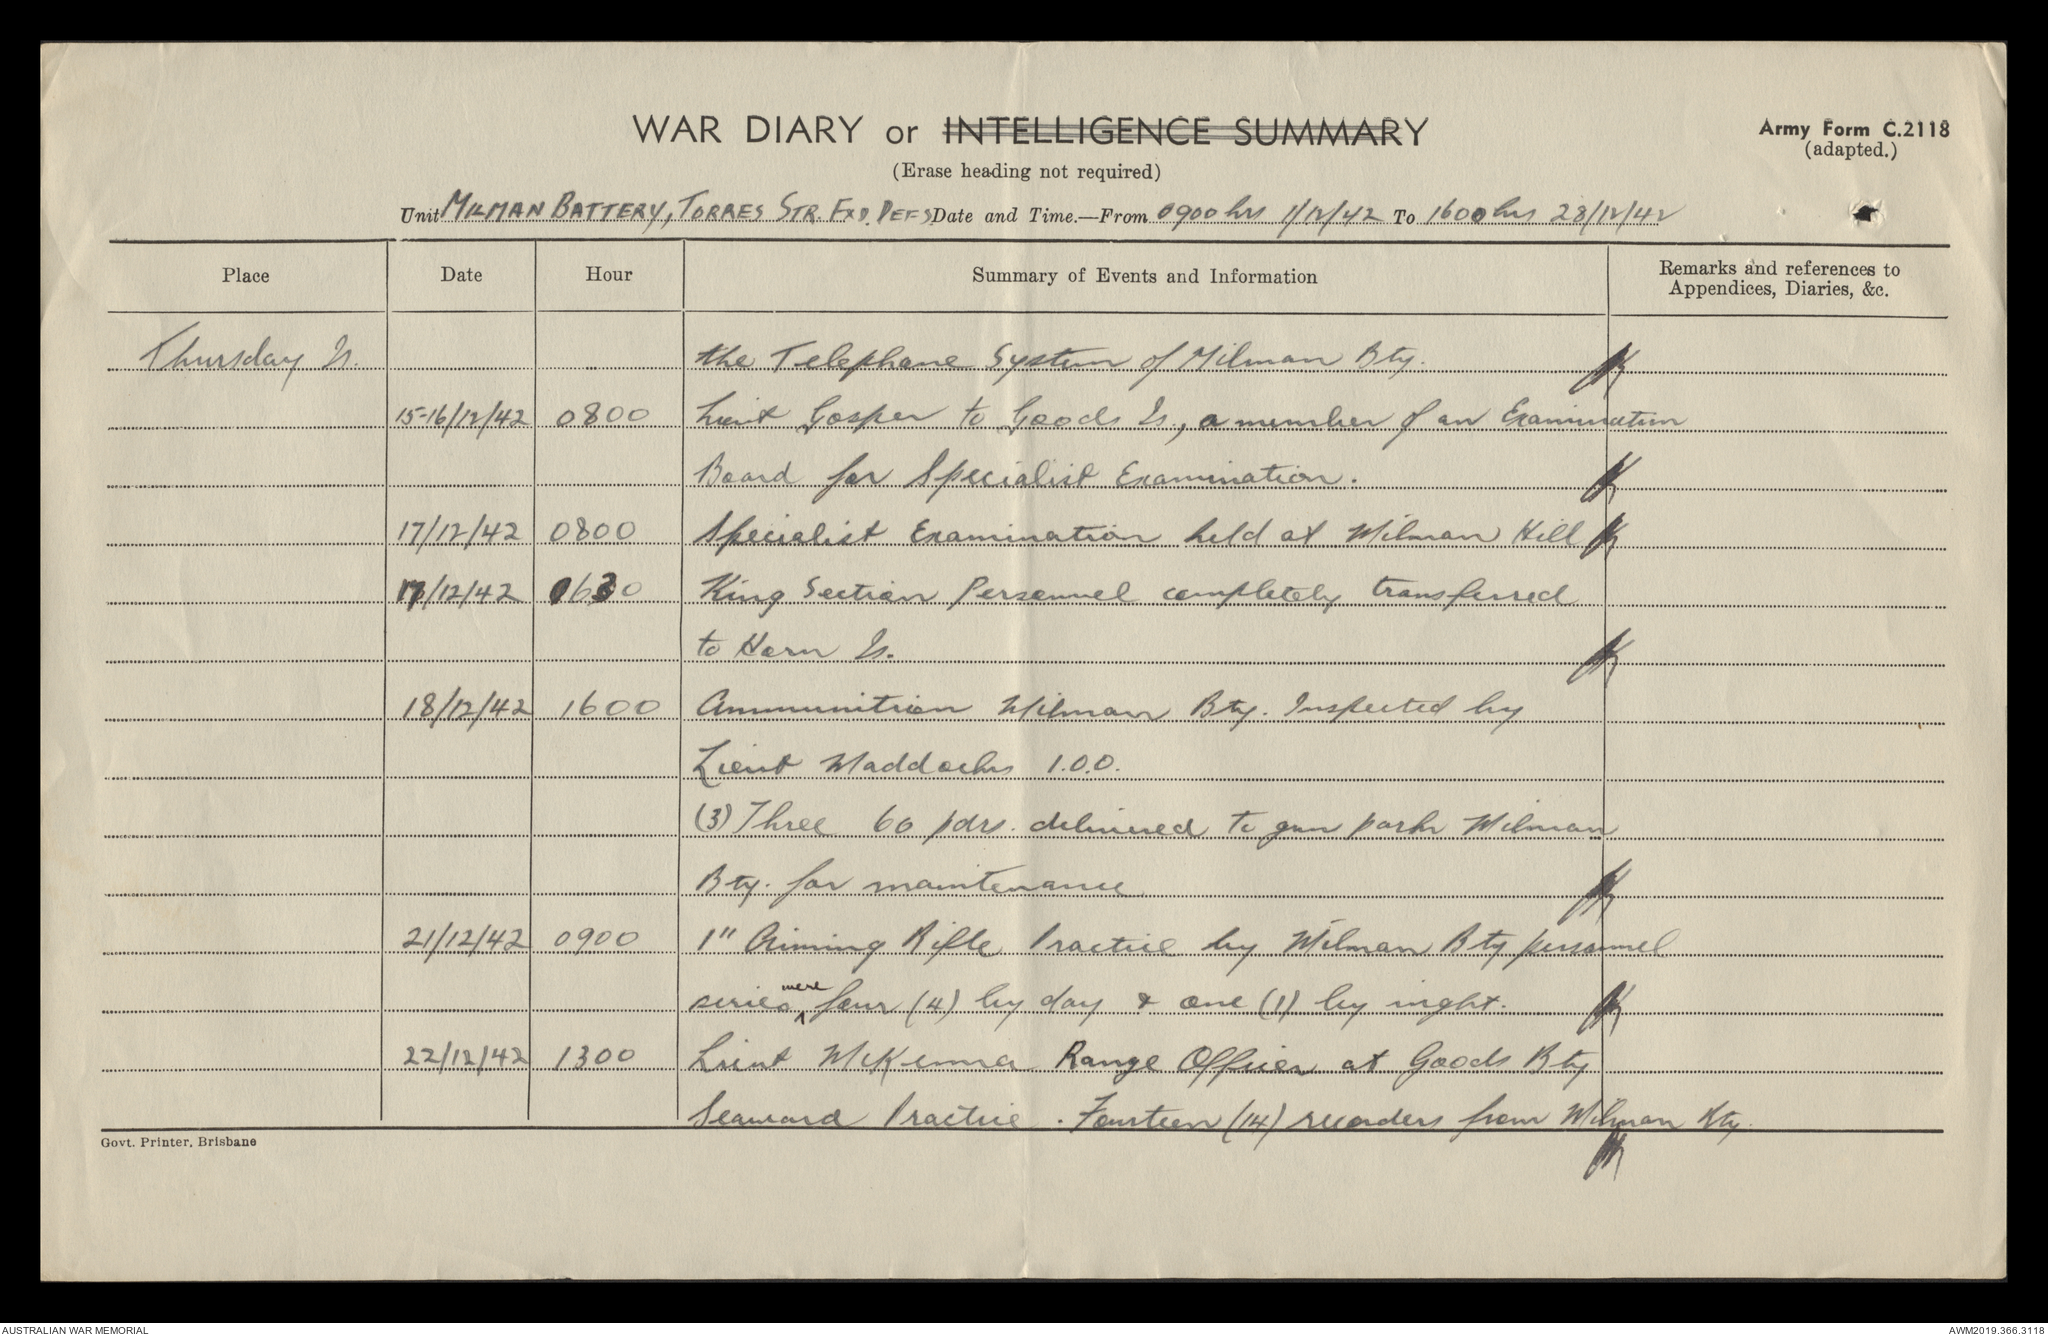 WAR DIARY or INTELLIGENCE SUMMARY
Army Form C.2118
(adapted.)
(Erase heading not required)
Unit MILMAN BATTERY, TORRES STR. FXD. DEFS Date and Time.—From 0900 hrs 1/12/42 To 1600 hrs 28/12/42
Place Date Hour Summary of Events and Information Remarks and references to
Appendices, Diaries, &c.
Thursday Is. the Telephone System of Milman Bty.
15-16/12/42 0800 Lieut Gosper to Goods Is., a member of an Examination
Board for Specialist Examination.
17/12/42 0800 Specialist Examination held at Milman Hill
17/12/42 0630 King Section Personnel completely transferred
to Horn Is.
18/12/42 1600 Ammunition Milman Bty. Inspected by
Lieut Maddocks I.O.O.
(3) Three 60 pdrs. delivered to gun park Milman
Bty. for maintenance
21/12/42 0900 1" Aiming Rifle Practice by Milman Bty personnel
series were four (4) by day & one (1) by night.
22/12/42 1300 Lieut McKenna Range Officer at Goods Bty
Seaward Practice. Fourteen (14) recorders from Milman Bty.
Govt. Printer, Brisbane
AUSTRALIAN WAR MEMORIAL
AWM2019.366.3118